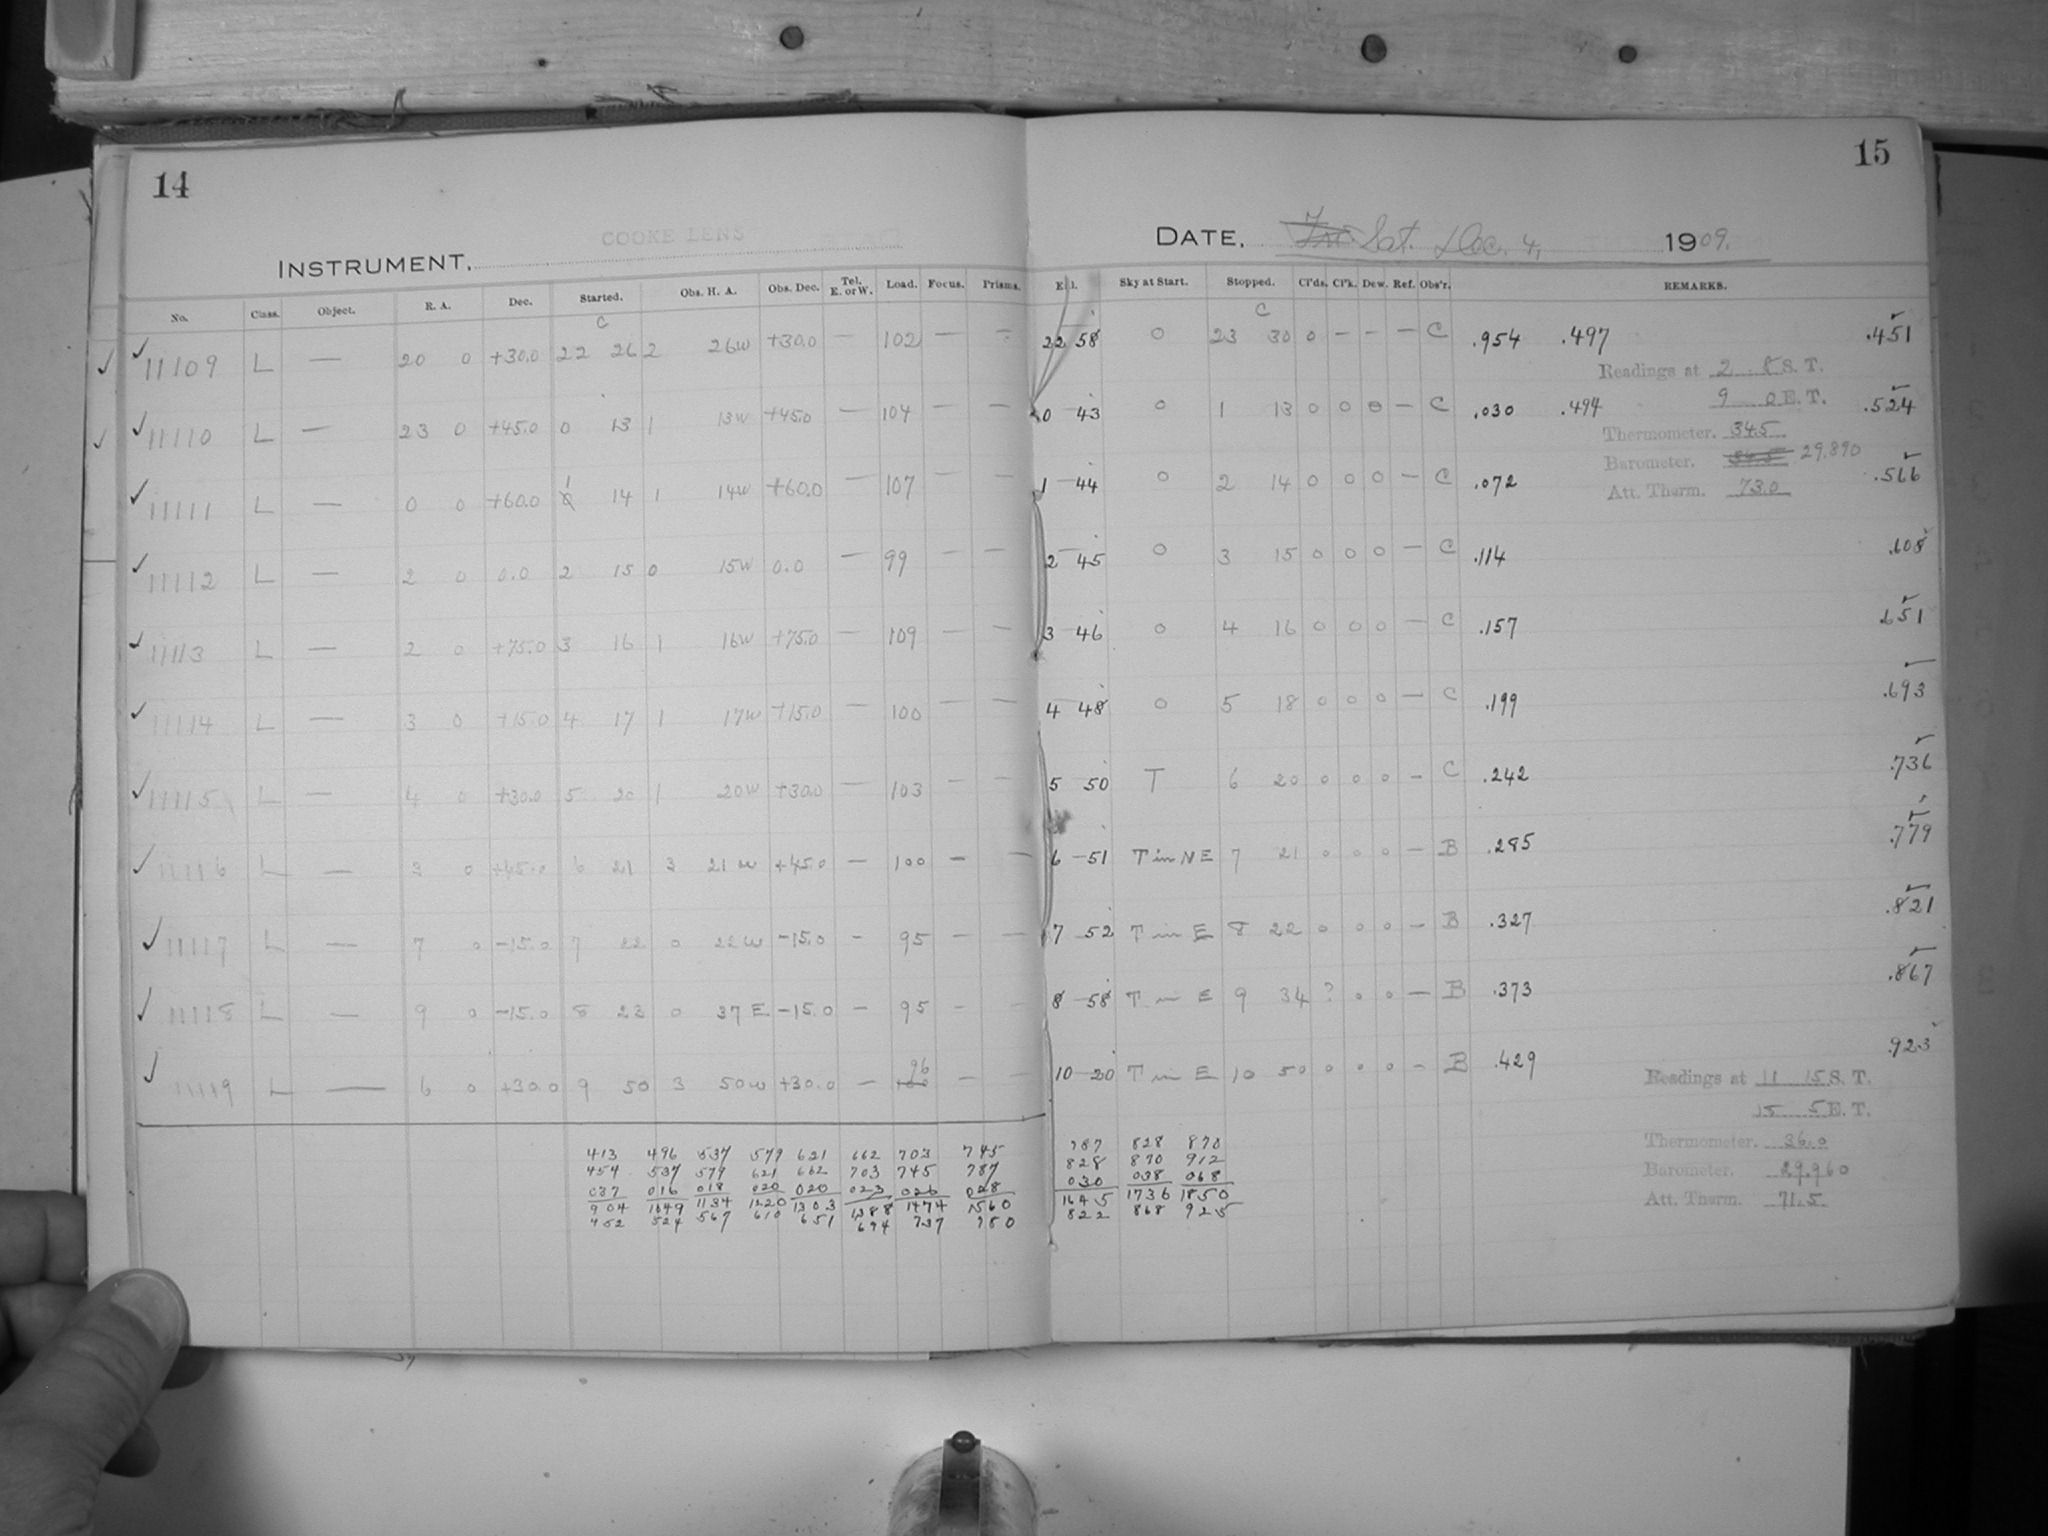 14
15
COOKE LENS
INSTRUMENT.
DATE. Sat. Dec. 4, 1909.
No. Class. Object. R. A. Dec. Started. Obs. H. A. Obs. Dec. Tel. E. or W. Load. Focus. Prisms. Sky at Start. Stopped. Cl'ds. Cl'k. Dew. Ref. Obs'r. REMARKS.
C C
11109 L — 20 0 +30.0 22 26 2 26W +30.0 — 102 — — 22 58 0 23 30 0 — — — C .954 .497 .451
Readings at 2 8 S. T.
9 0 E. T.
11110 L — 23 0 +45.0 0 13 1 13W +45.0 — 104 — — 0 43 0 1 13 0 0 0 — C .030 .494 .524
Thermometer. 34.5
Barometer. 34.5 29.890
Att. Therm. 73.0
11111 L — 0 0 +60.0 1 14 1 14W +60.0 — 107 — — 1 44 0 2 14 0 0 0 — C .072 .566
11112 L — 2 0 0.0 2 15 0 15W 0.0 — 99 — — 2 45 0 3 15 0 0 0 — C .114 .608
11113 L — 2 0 +75.0 3 16 1 16W +75.0 — 109 — — 3 46 0 4 16 0 0 0 — C .157 .651
11114 L — 3 0 +15.0 4 17 1 17W +15.0 — 100 — — 4 48 0 5 18 0 0 0 — C .199 .693
11115 L — 4 0 +30.0 5 20 1 20W +30.0 — 103 — — 5 50 T 6 20 0 0 0 — C .242 .736
11116 L — 3 0 +45.0 6 21 3 21W +45.0 — 100 — — 6 51 T in NE 7 21 0 0 0 — B .285 .779
11117 L — 7 0 -15.0 7 22 0 22W -15.0 — 95 — — 7 52 T in E 8 22 0 0 0 — B .327 .821
11118 L — 9 0 -15.0 8 23 0 37E -15.0 — 95 — — 8 58 T in E 9 34 ? 0 0 — B .373 .867
11119 L — 6 0 +30.0 9 50 3 50W +30.0 — 96 — — 10 20 T in E 10 50 0 0 0 — B .429 .923
Readings at 11 15 S. T.
15 5 E. T.
Thermometer. 36.0
Barometer. 29.960
Att. Therm. 71.5
413 496 537 579 621 662 703 745 787 828 870
454 537 579 621 662 703 745 787 828 870 912
037 016 018 020 020 023 026 028 030 038 068
904 1049 1134 1220 1303 1388 1474 1560 1645 1736 1850
452 524 567 610 651 694 737 780 822 868 925